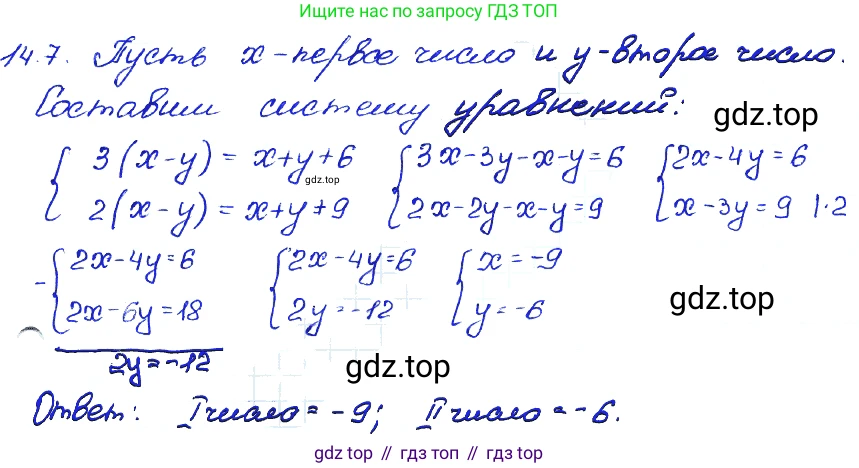 Ищите нас по запросу ГДЗ ТОП
14.7. Пусть x - первое число и y - второе число.
Составим систему уравнений:
gdz.top
{ 3(x-y) = x+y+6 { 3x-3y-x-y=6 { 2x-4y=6
gdz.top
{ 2(x-y) = x+y+9 { 2x-2y-x-y=9 { x-3y=9 |·2
- { 2x-4y=6 { 2x-4y=6 { x=-9
{ 2x-6y=18 { 2y=-12 { y=-6
gdz.top
2y=-12
gdz.top
Ответ: I число = -9; II число = -6.
gdz top // gdz top // gdz top